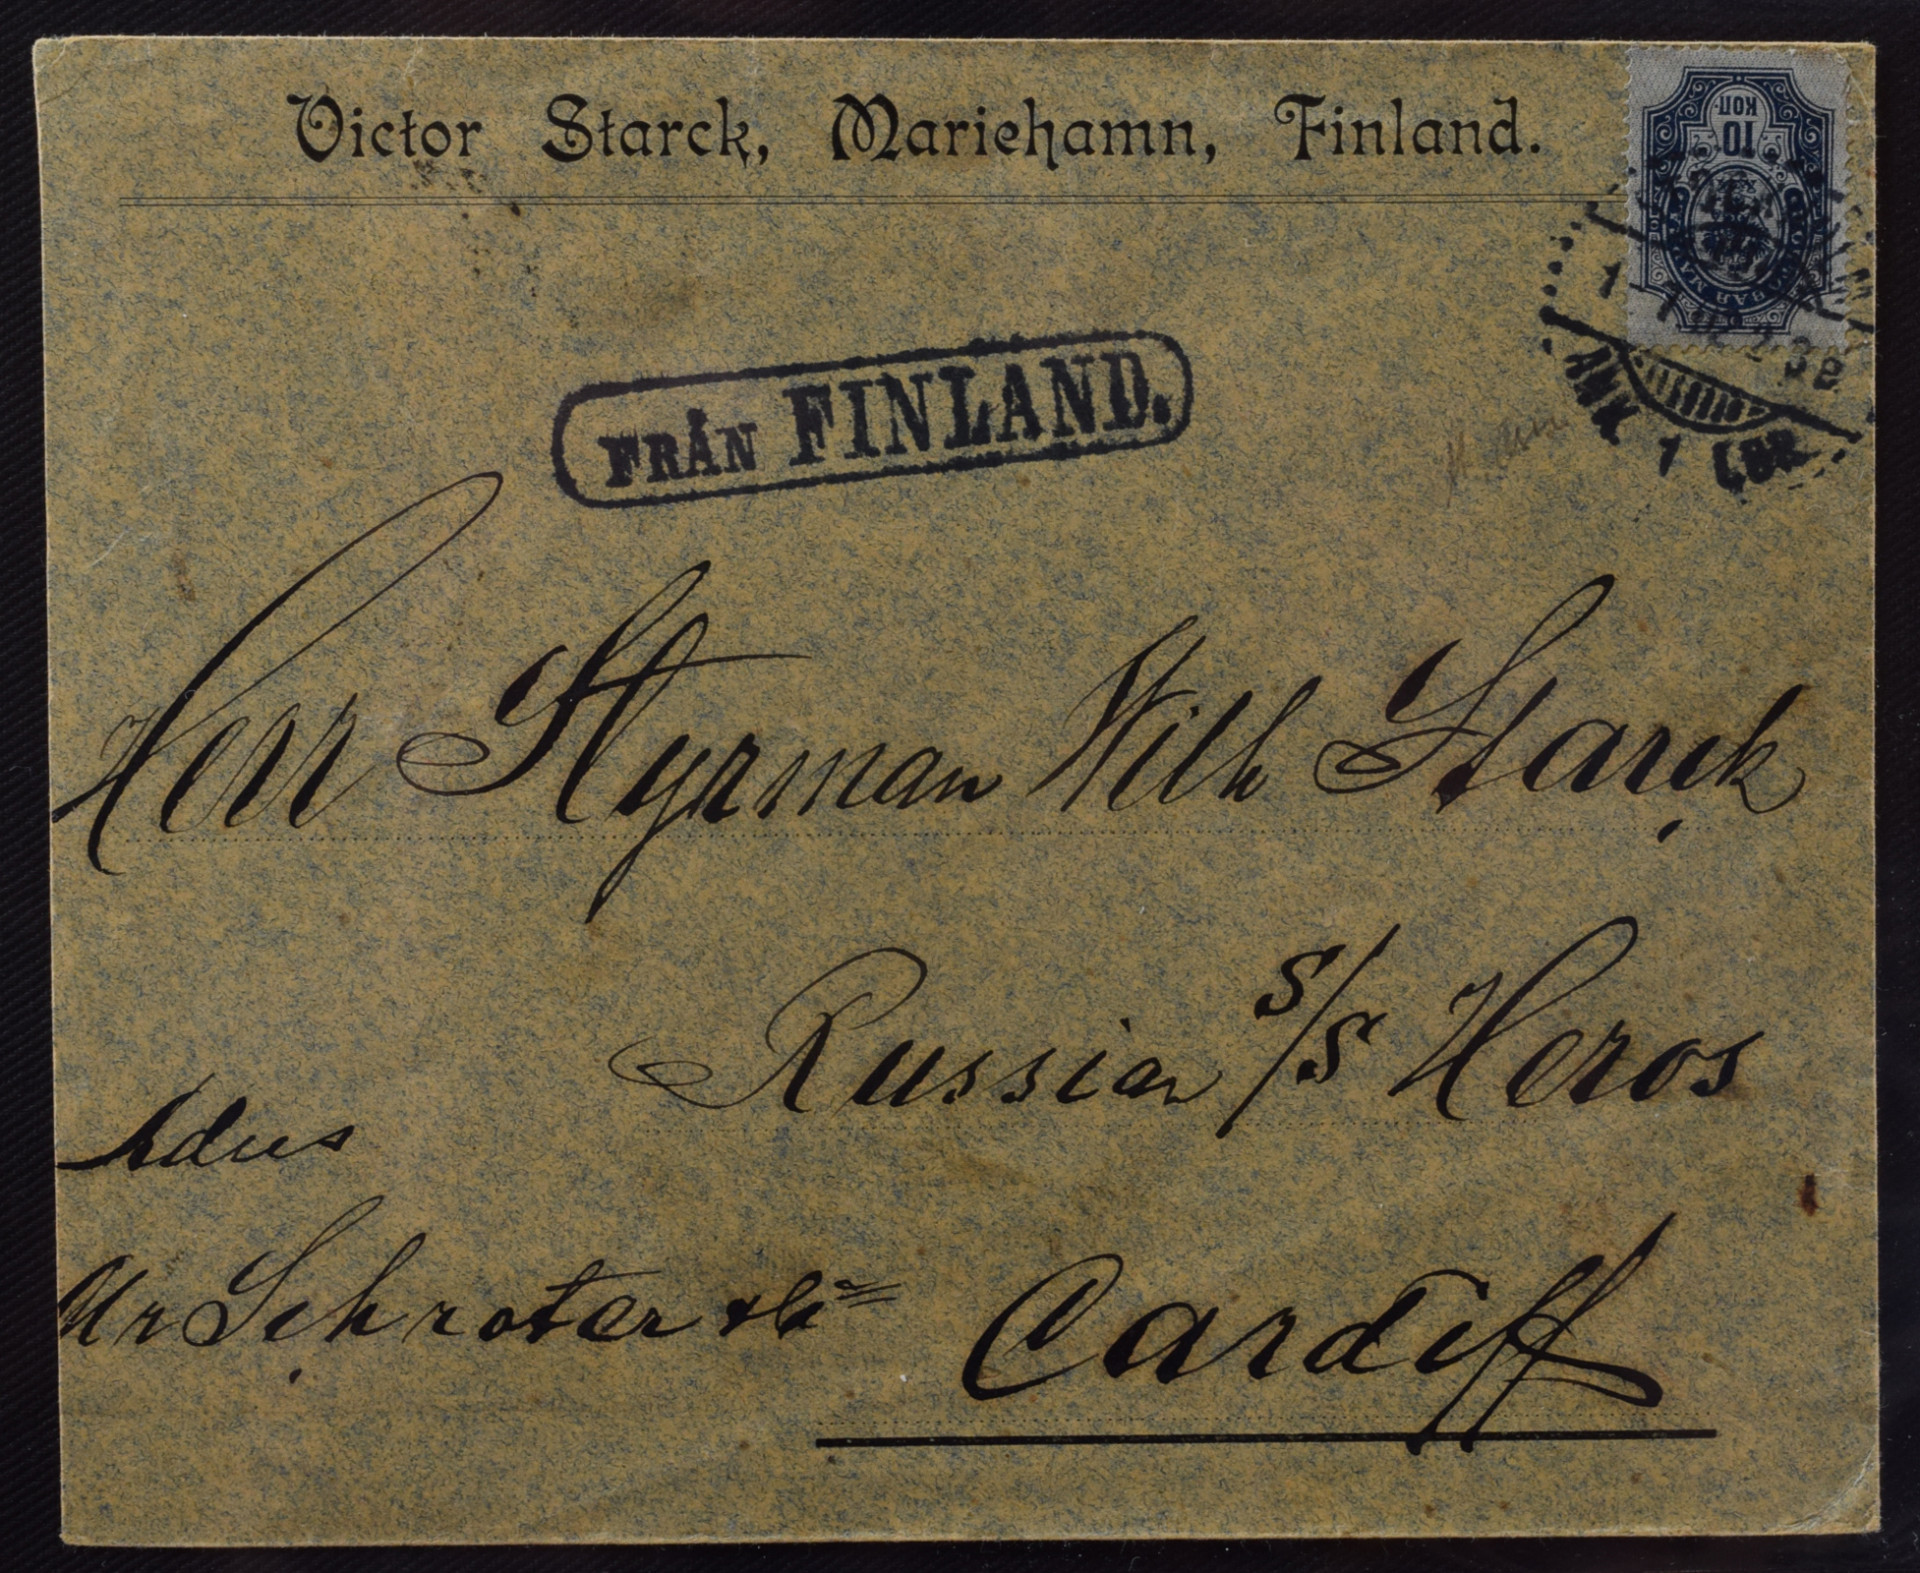 Victor Starck, Mariehamn, Finland.
10
КОП
FRÅN FINLAND.
ANK 1
Herr Styrman Wilh Starck
Russian S/S Heros
Adres
Mr Schroter & Co
Cardiff